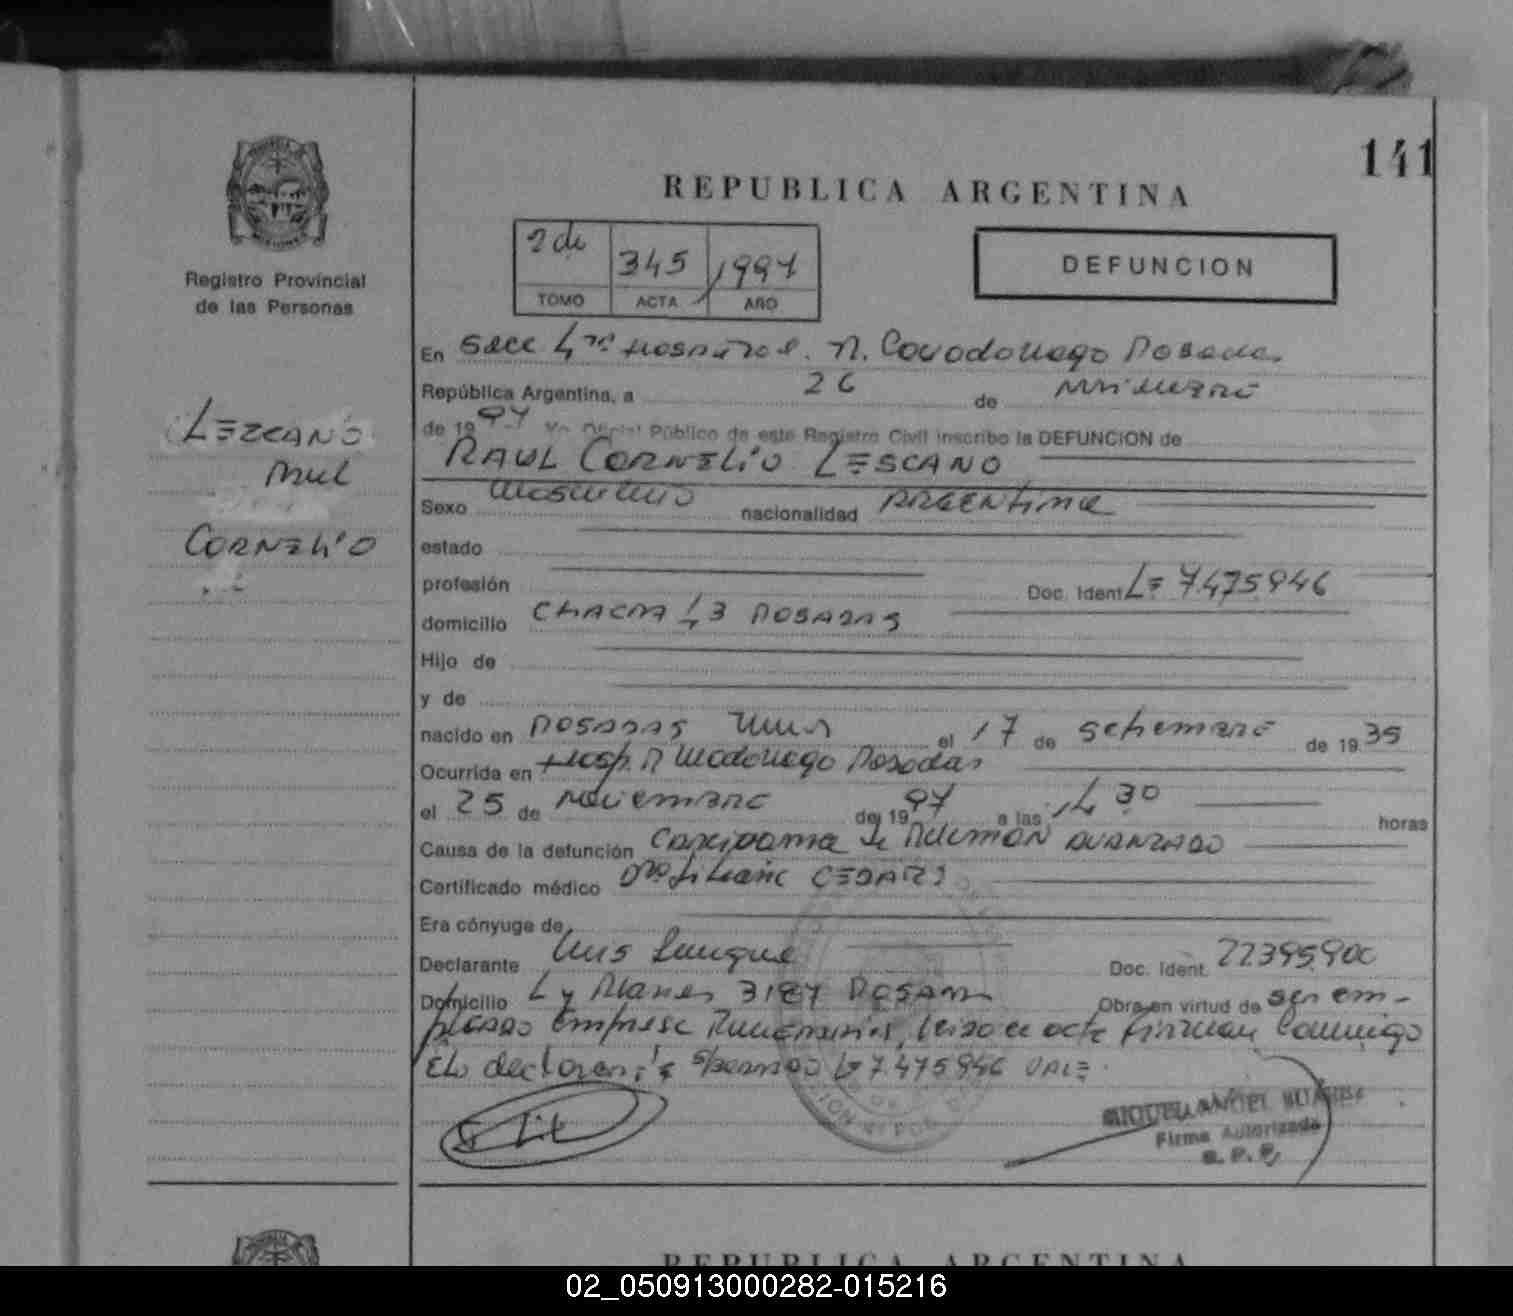 141
REPUBLICA ARGENTINA
2do 345 1997
TOMO ACTA AÑO
DEFUNCION
Registro Provincial
de las Personas
LEZCANO
Raul
CORNELIO
En Secc 4ta Hospital. R. Posadas
República Argentina, a 26 de Noviembre
de 1997 Yo Oficial Público de este Registro Civil inscribo la DEFUNCION de
RAUL CORNELIO LESCANO
Sexo masculino nacionalidad ARGENTINA
estado
profesión Doc. Ident LE 7.475.946
domicilio CHACRA 13 POSADAS
Hijo de
y de
nacido en POSADAS el 17 de setiembre de 1935
Ocurrida en Hosp. R Madariaga Posadas
el 25 de Noviembre de 1997 a las 30 horas
Causa de la defunción Carcinoma de PULMON AVANZADO
Certificado médico
Era cónyuge de
Declarante Luis Doc. Ident. 22395900
Domicilio L y Planes POSADAS Obra en virtud de ser em-
pleado empresa acta firman conmigo
El declarante s/borrado LE 7.475946 VALE.
MIGUEL ANGEL
Firma Autorizada
R. P. P.
REPUBLICA ARGENTINA
02_050913000282-015216